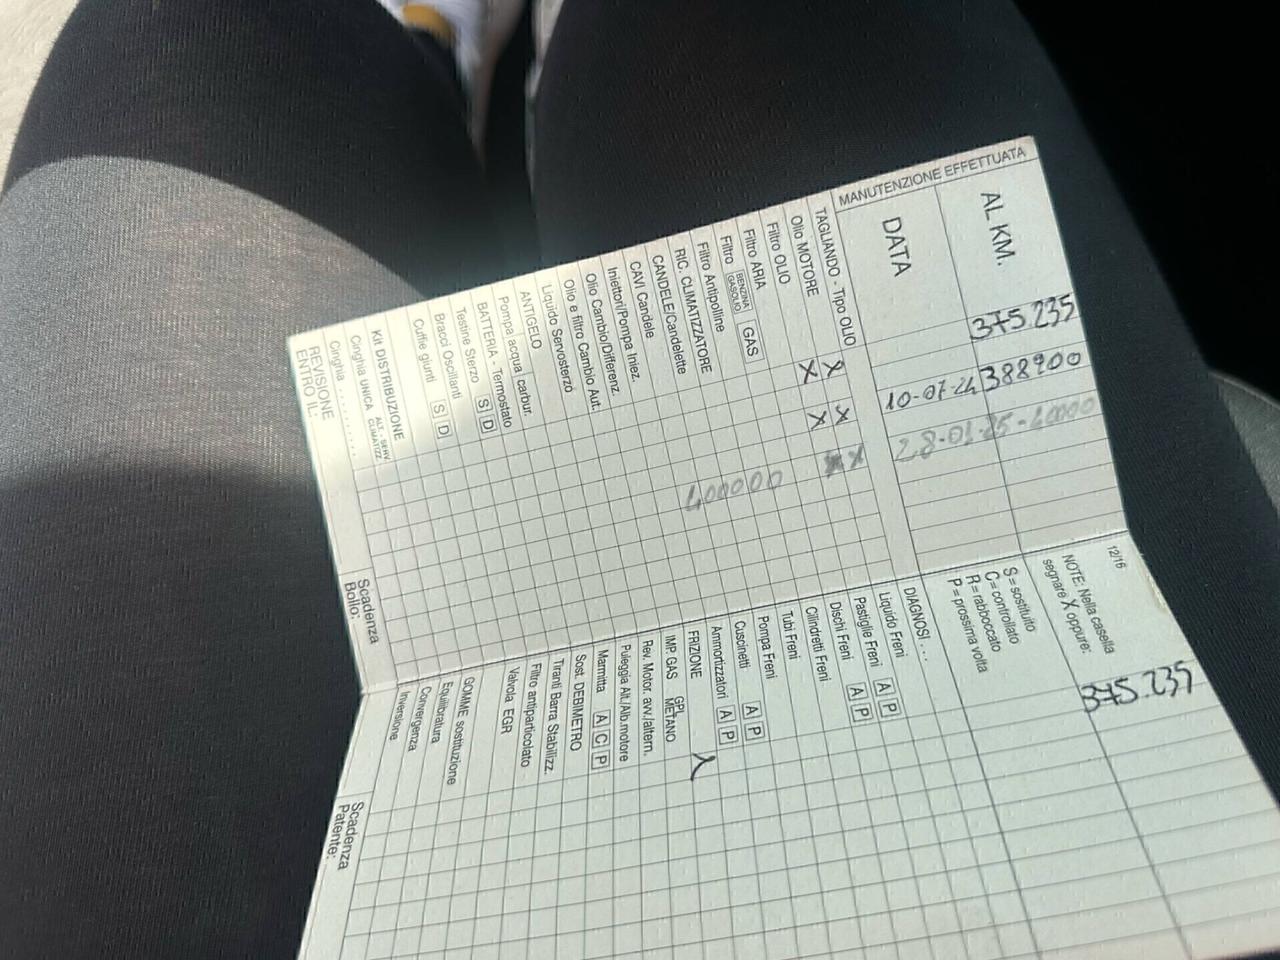 MANUTENZIONE EFFETTUATA
AL KM. 375.235 388900
DATA 10-07-24
TAGLIANDO - Tipo OLIO X X X
Olio MOTORE X X
Filtro OLIO
Filtro ARIA
Filtro BENZINA GASOLIO GAS
Filtro Antipolline
RIC. CLIMATIZZATORE
CANDELE/Candelette
CAVI Candele
Iniettori/Pompa Iniez.
Olio Cambio/Differenz.
Olio e filtro Cambio Aut.
Liquido Servosterzo
ANTIGELO
Pompa acqua carbur.
BATTERIA - Termostato
Testine Sterzo S D
Bracci Oscillanti
Cuffie giunti S D
Kit DISTRIBUZIONE
Cinghia UNICA ALT. - SERV. CLIMATIZZ.
Cinghia ..........
REVISIONE
ENTRO IL:
Scadenza
Bollo:
12/16
NOTE: Nella casella
segnare X oppure:
S = sostituito
C = controllato
R = rabboccato
P = prossima volta
375.235
DIAGNOSI ...
Liquido Freni
Pastiglie Freni A P
Dischi Freni A P
Cilindretti Freni
Tubi Freni
Pompa Freni
Cuscinetti A P
Ammortizzatori A P
FRIZIONE
IMP. GAS GPL METANO
Rev. Motor. avv./altern.
Puleggia Alt./Alb.motore
Marmitta A C P
Sost. DEBIMETRO
Tiranti Barra Stabilizz.
Filtro antiparticolato
Valvola EGR
GOMME sostituzione
Equilibratura
Convergenza
Inversione
Scadenza
Patente: